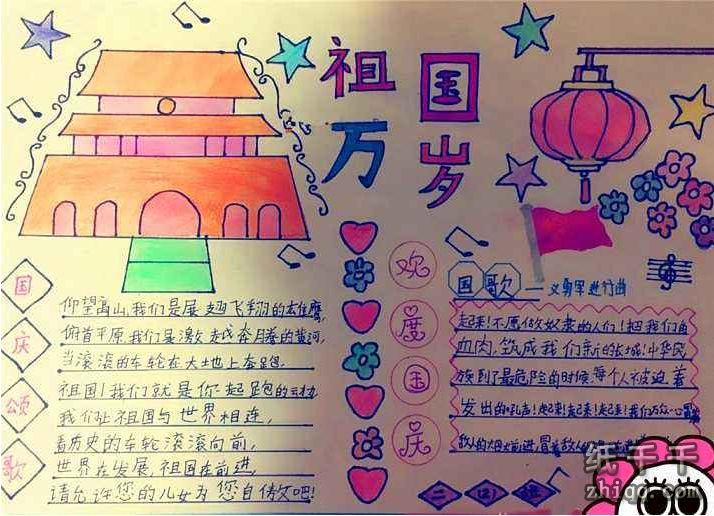 祖国
万岁
国庆颂歌
仰望高山,我们是展翅飞翔的雄鹰,
俯首平原,我们是激起奔腾的黄河,
当滚滚的车轮在大地上奔跑,
祖国!我们就是你起跑的
我们让祖国与世界相连,
看历史的车轮滚滚向前,
世界在发展,祖国在前进,
请允许您的儿女为您自傲吧!
欢度国庆
国歌——义勇军进行曲
起来!不愿做奴隶的人们!把我们
血肉,筑成我们新的长城!中华民
族到了最危险的时候,每个人被迫着
发出的吼声!起来!起来!起来!我们万众一心冒着
敌人的炮火前进,冒着敌人的
二(2)班
纸千千
zhiqq.com